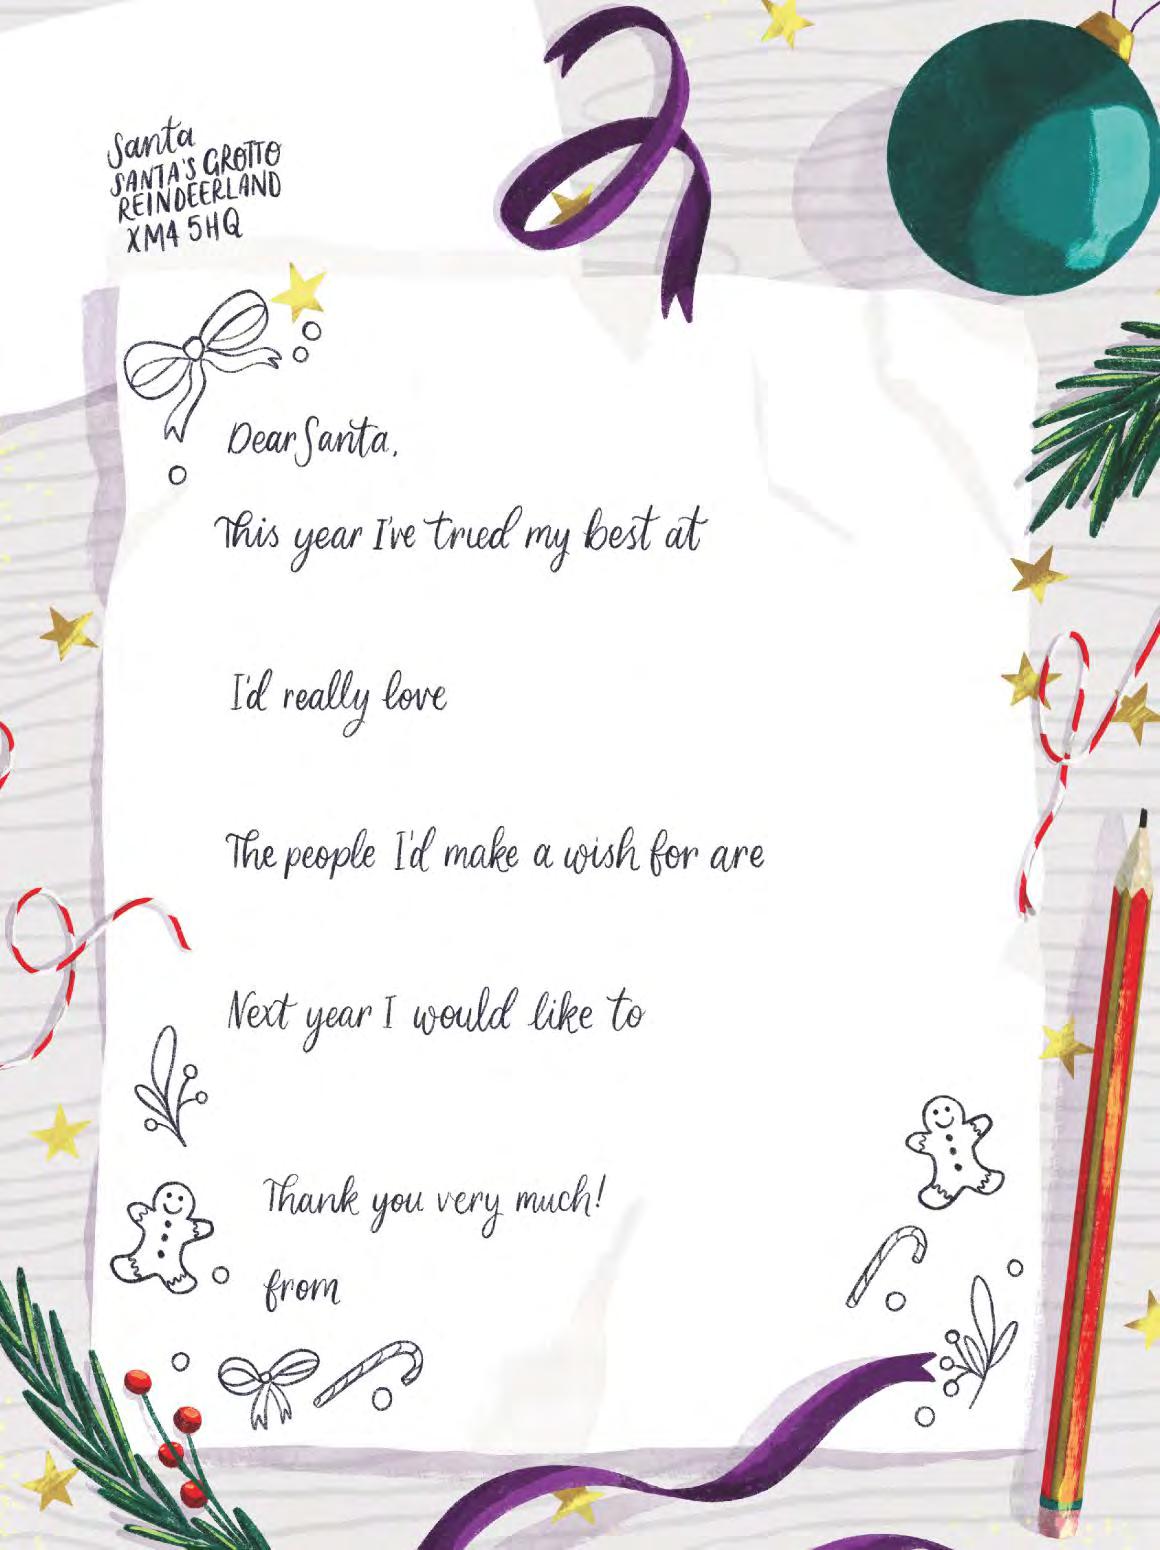 Santa
SANTA'S GROTTO
REINDEERLAND
XM4 5HQ
Dear Santa,
This year I've tried my best at
I'd really love
The people I'd make a wish for are
Next year I would like to
Thank you very much!
from